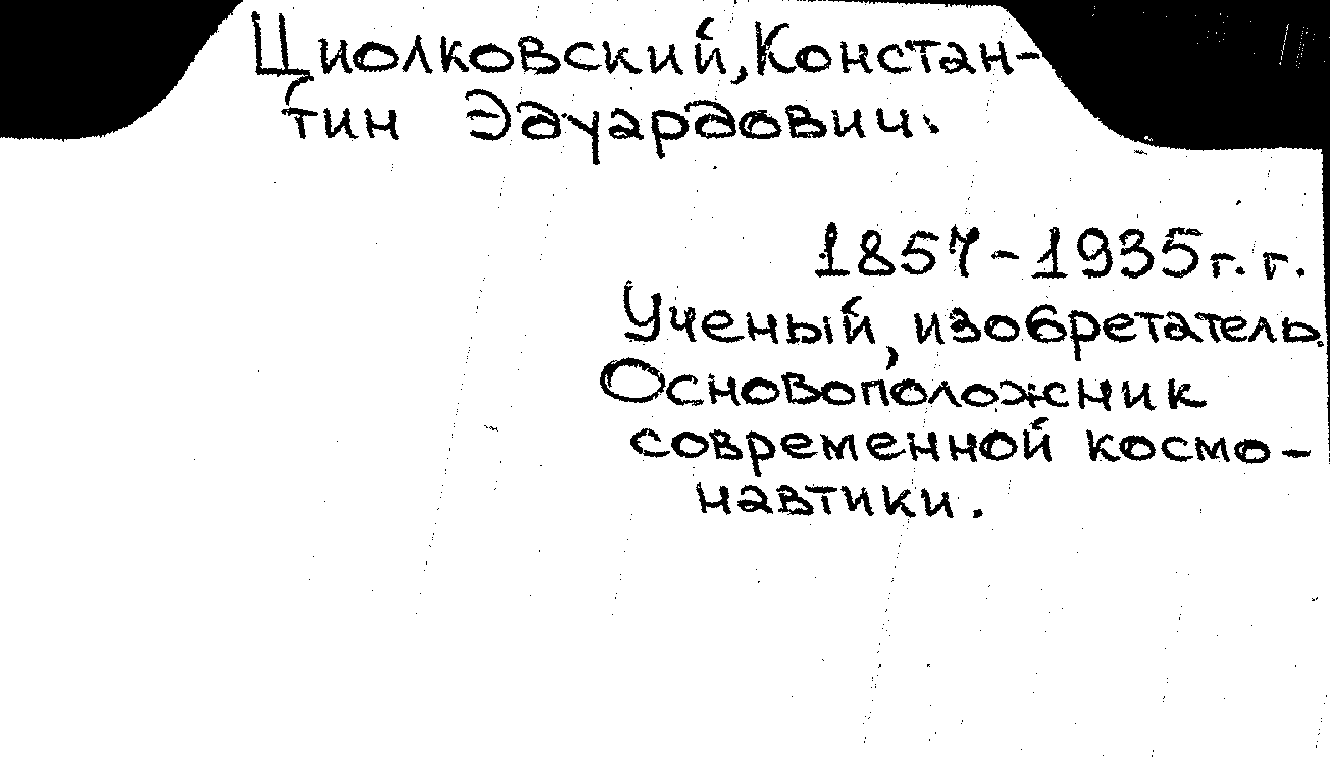 Циолковский, Констан-
тин Эдуардович.
1857-1935г.г.
Ученый, изобретатель.
Основоположник
современной космо-
навтики.